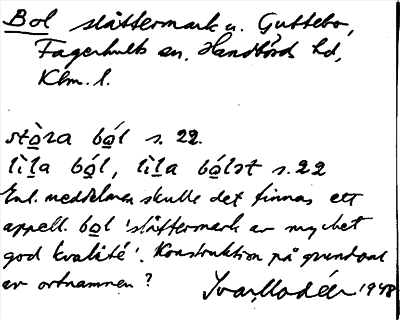 Bol slåttermark u. Guttebo,
Fagerhults sn, Handbörds hd,
Klm. l.
stòra bo̲l s. 22.
lìla bo̲l, lìla bo̲lət s. 22
Enl. meddelaren skulle det finnas ett
appell. bol 'slåttermark av mycket
god kvalité'. Konstruktion på grundval
av ortnamnen? Ivar Modéer 1948